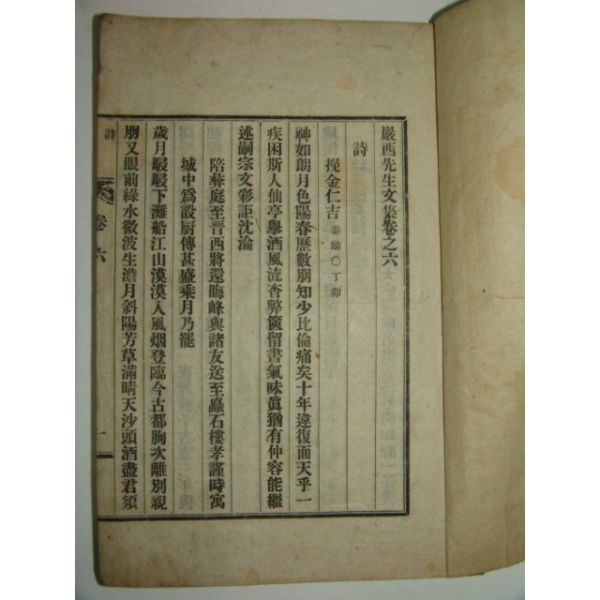 巖西先生文集卷之六
詩
挽金仁吉 ○丁卯
神如朗月色陽春歷數朋知少比倫痛矣十年違復面天乎一
疾困斯人仙亭擧酒風流杳弊篋留書氣味眞猶有仲容能繼
述嗣宗文彩詎沈淪
陪彜庭至晋西將還晦峰與諸友送至矗石樓孝謹時寓
城中爲設厨傳甚盛乘月乃罷
歲月駸駸下灘船江山漠漠入風烟登臨今古都胸次離別親
朋又眼前綠水微波生澹月斜陽芳草滿晴天沙頭酒盡君須
詩
卷六
一